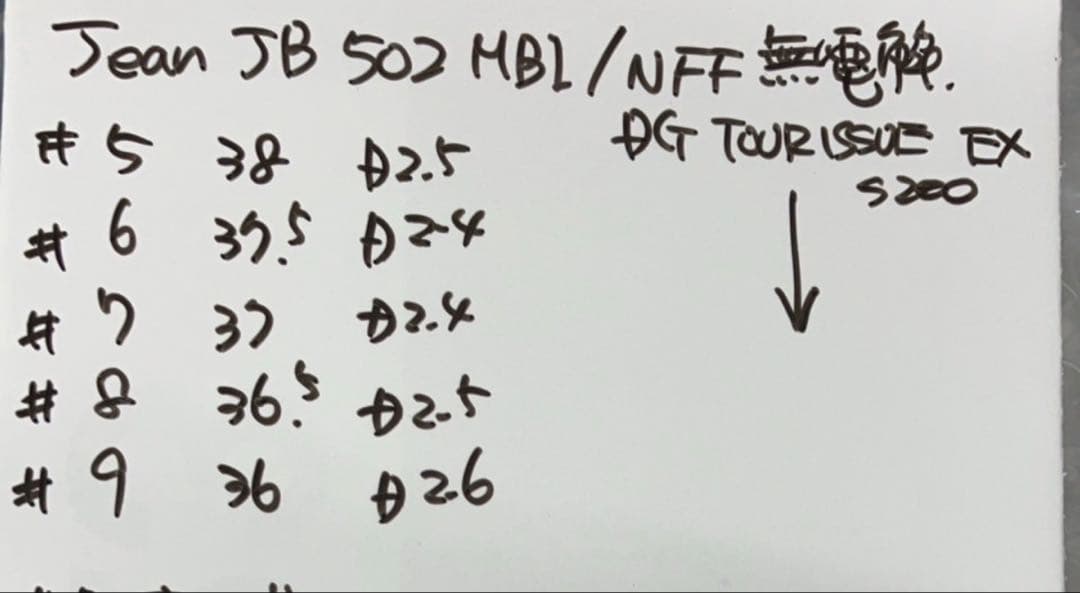 Jean JB 502 MBL/NFF 無電解.
DG TOUR ISSUE EX
S200
#5 38 D2.5
#6 37.5 D2.4
#7 37 D2.4
#8 36.5 D2.5
#9 36 D2.6